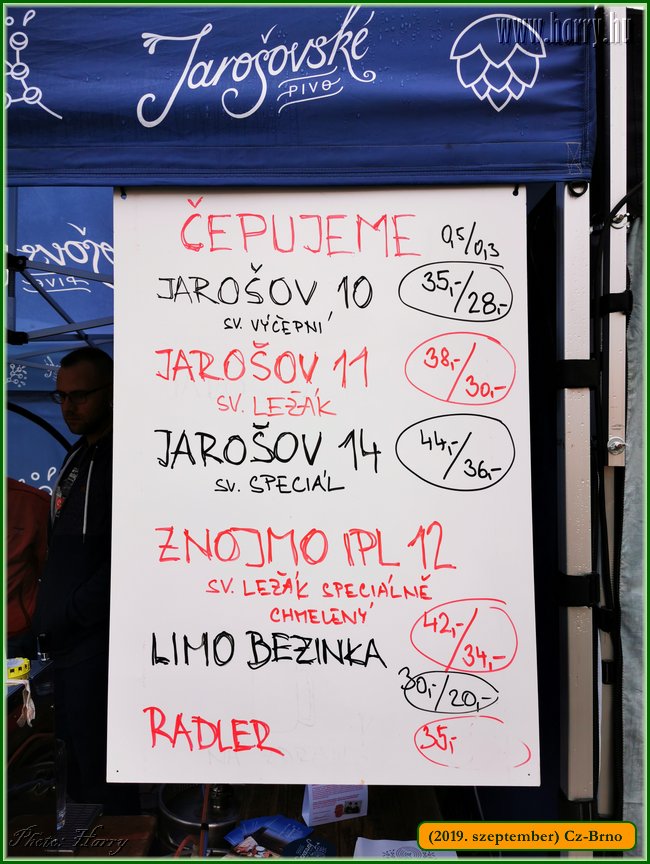 www.harry.hu
Jarošovské
PIVO
ČEPUJEME 0,5/0,3
JAROŠOV 10 35,-/28,-
SV. VÝČEPNÍ
JAROŠOV 11 38,-/30,-
SV. LEŽÁK
JAROŠOV 14 44,-/36,-
SV. SPECIÁL
ZNOJMO IPL 12
SV. LEŽÁK SPECIÁLNĚ
CHMELENÝ 42,-/34,-
LIMO BEZINKA 30,-/20,-
RADLER 35,-
Photo: Harry
(2019. szeptember) Cz-Brno